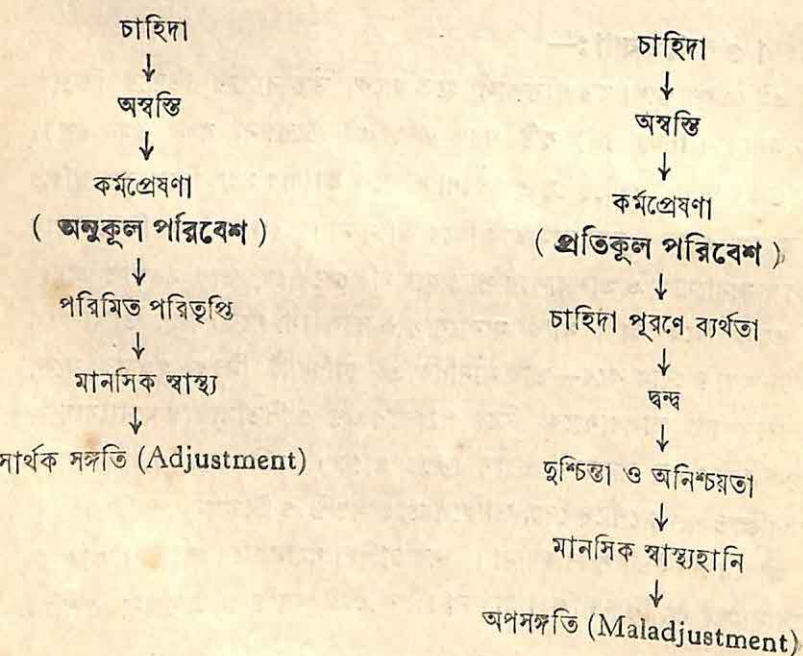 চাহিদা
↓
অস্বস্তি
↓
কর্মপ্রেষণা
( অনুকূল পরিবেশ )
↓
পরিমিত পরিতৃপ্তি
↓
মানসিক স্বাস্থ্য
↓
সার্থক সঙ্গতি (Adjustment)
চাহিদা
↓
অস্বস্তি
↓
কর্মপ্রেষণা
( প্রতিকূল পরিবেশ )
↓
চাহিদা পূরণে ব্যর্থতা
↓
দ্বন্দ্ব
↓
দুশ্চিন্তা ও অনিশ্চয়তা
↓
মানসিক স্বাস্থ্যহানি
↓
অপসঙ্গতি (Maladjustment)